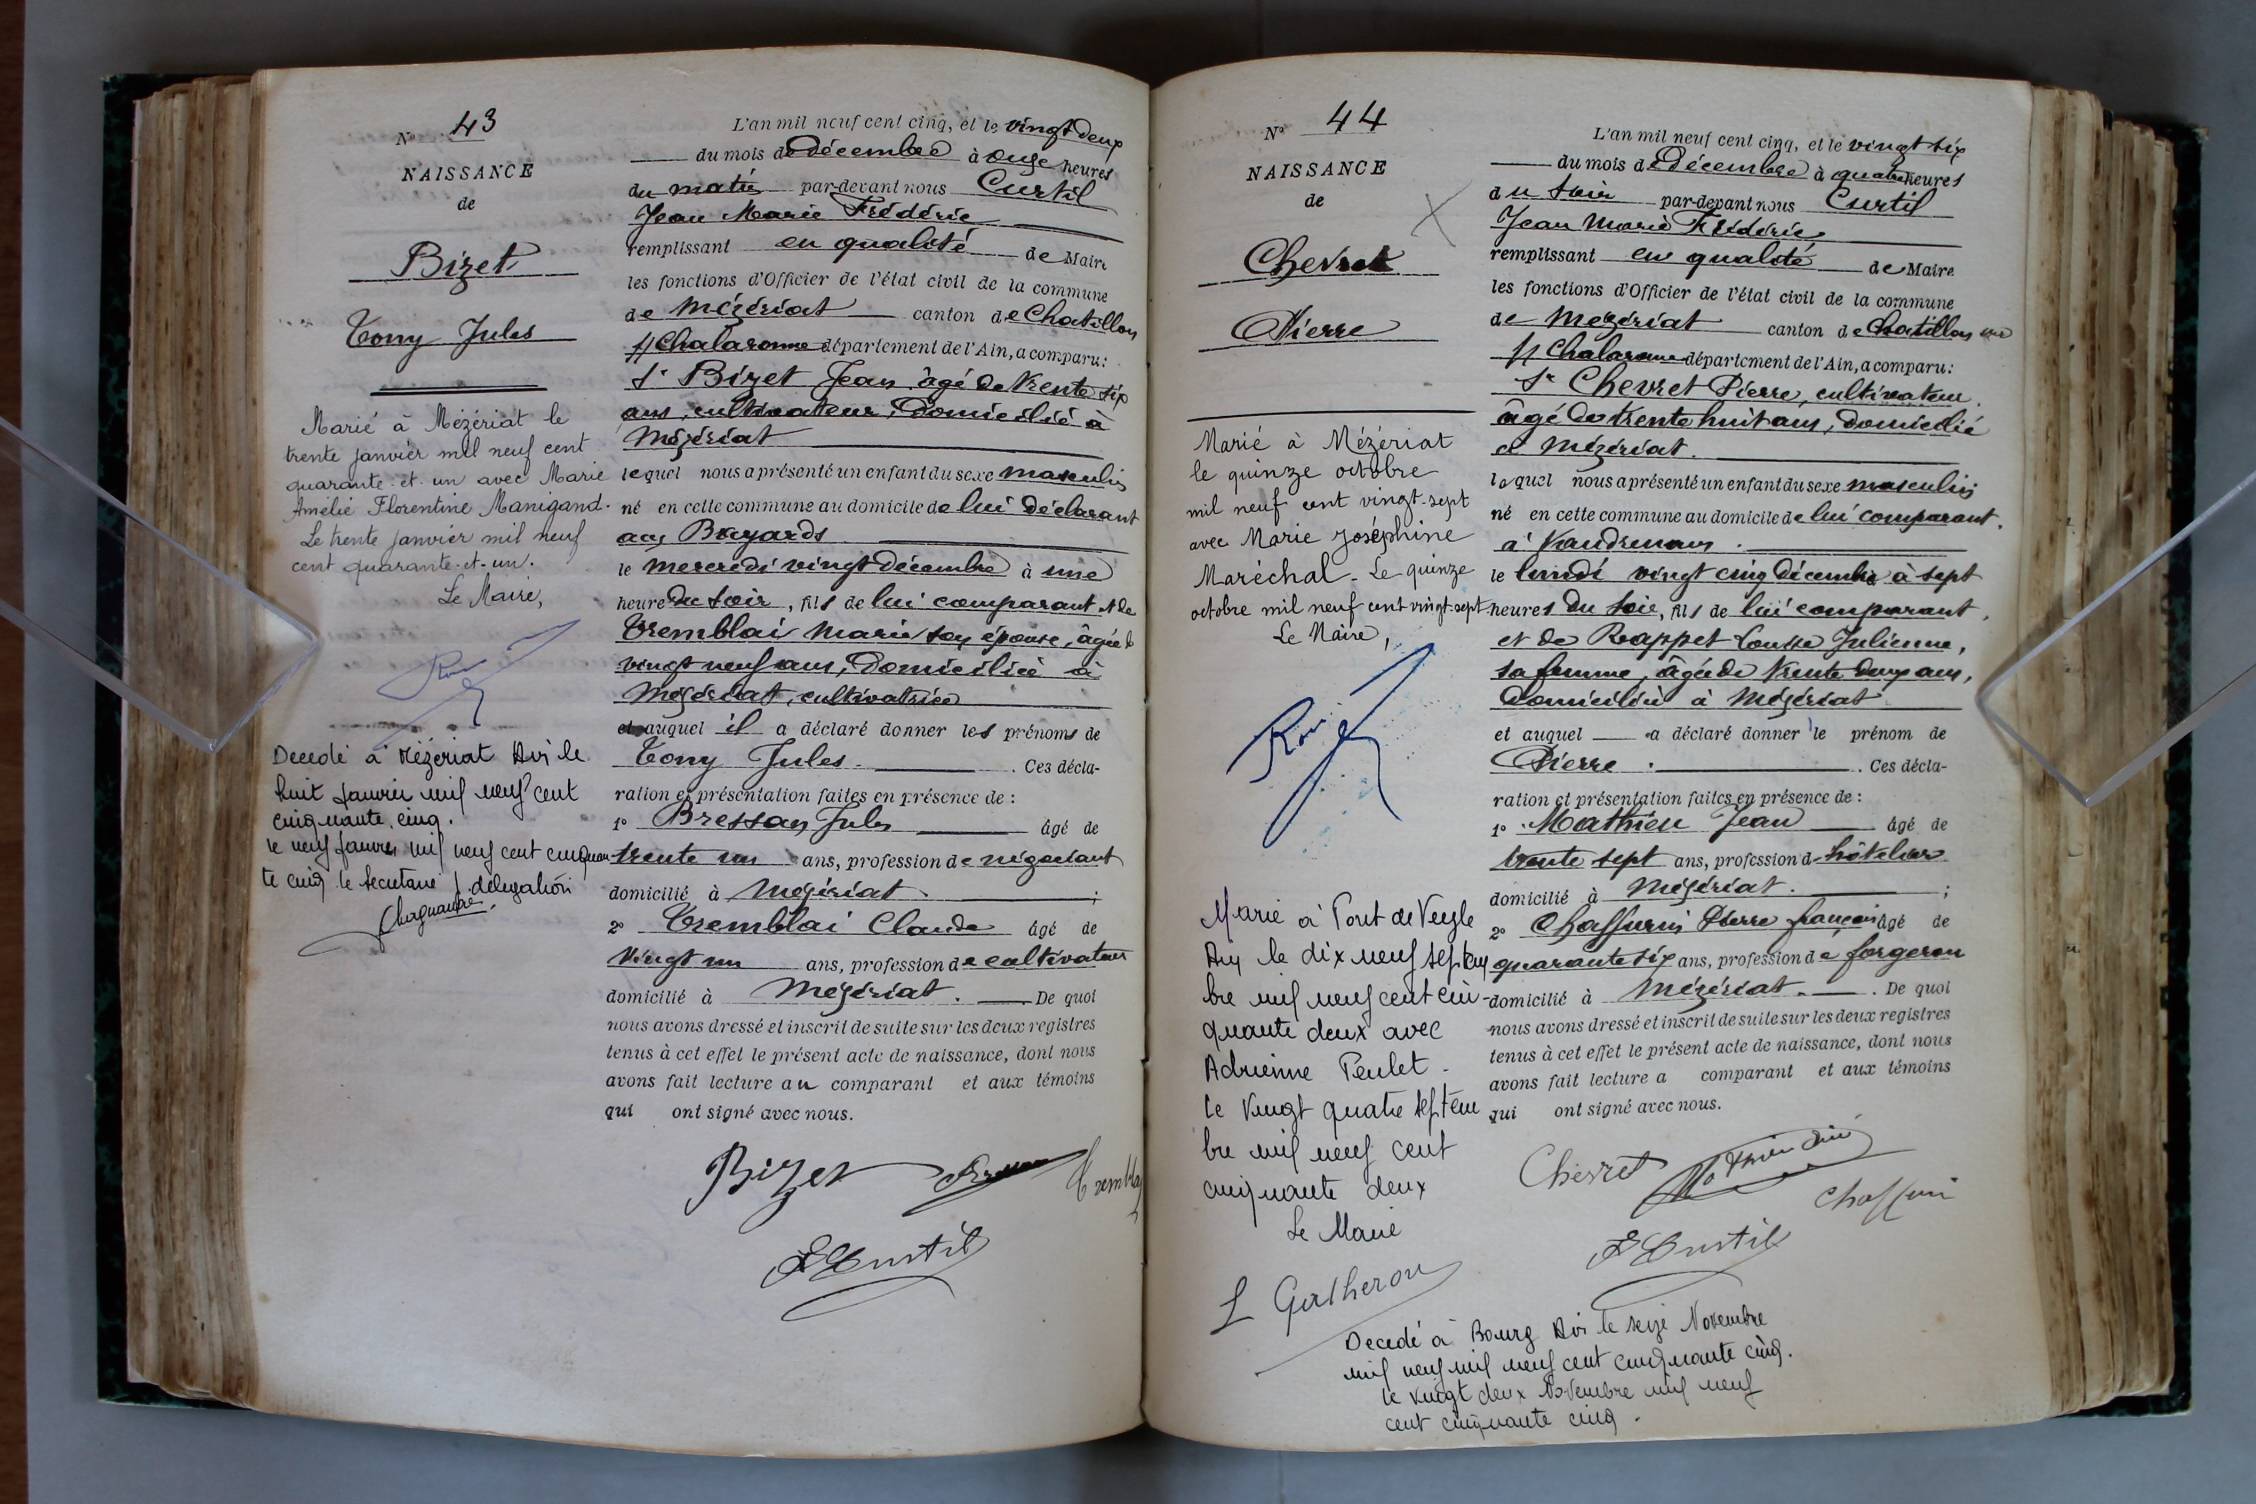 N° 43
NAISSANCE
de
Bizet
Tony Jules
Marié à Mézériat le
trente janvier mil neuf cent
quarante-et-un avec Marie
Amélie Florentine Manigand.
Le trente janvier mil neuf
cent quarante-et-un.
Le Maire,
Decedé à Mézériat Ain le
huit Janvier mil neuf cent
cinquante cinq.
le neuf Janvier mil neuf cent cinquan
te cinq le secretaire p. délégation
L'an mil neuf cent cinq, et le vingt deux
du mois de Décembre à onze heures
du matin par-devant nous Curtil
Jean Marie Frédéric
remplissant en qualité de Maire
les fonctions d'Officier de l'état civil de la commune
de Mézériat canton de Chatillon
s/ Chalaronne département de l'Ain, a comparu:
Sr Bizet Jean âgé de trente six
ans, cultivateur, domicilié à
Mézériat
lequel nous a présenté un enfant du sexe masculin
né en cette commune au domicile de lui déclarant
aux Broyards
le mercredi vingt décembre à une
heure du soir, fils de lui comparant et de
Tremblai Marie son épouse, âgée de
vingt neuf ans, domiciliée à
Mézériat, cultivatrice
et auquel il a déclaré donner les prénoms de
Tony Jules. Ces décla-
ration et présentation faites en présence de :
1° Bressan Jules âgé de
trente un ans, profession de négociant
domicilié à Mézériat ;
2° Tremblai Claude âgé de
vingt un ans, profession de cultivateur
domicilié à Mézériat. De quoi
nous avons dressé et inscrit de suite sur les deux registres
tenus à cet effet le présent acte de naissance, dont nous
avons fait lecture au comparant et aux témoins
qui ont signé avec nous.
Bizet Tremblay
F Curtil
N° 44
NAISSANCE
de
Chevret
Pierre
Marié à Mézériat
le quinze octobre
mil neuf cent vingt-sept
avec Marie Joséphine
Maréchal. Le quinze
octobre mil neuf cent vingt-sept.
Le Maire,
Marié à Pont de Veyle
Ain le dix neuf septem
bre mil neuf cent cin-
quante deux avec
Adrienne Peulet.
le vingt quatre septem
bre mil neuf cent
cinquante deux
Le Maire
L Gatheron
L'an mil neuf cent cinq, et le vingt six
du mois de Décembre à quatre heures
du soir par-devant nous Curtil
Jean Marie Frédéric
remplissant en qualité de Maire
les fonctions d'Officier de l'état civil de la commune
de Mézériat canton de Chatillon
s/ Chalaronne département de l'Ain, a comparu:
Sr Chevret Pierre, cultivateur,
âgé de trente huit ans, domicilié
à Mézériat.
lequel nous a présenté un enfant du sexe masculin
né en cette commune au domicile de lui comparant,
le lundi vingt cinq décembre à sept
heures du soir, fils de lui comparant,
et de Rappet Julienne,
sa femme, âgée de trente deux ans,
domiciliée à Mézériat
et auquel a déclaré donner le prénom de
Pierre. Ces décla-
ration et présentation faites en présence de :
1° Mathieu Jean âgé de
trente sept ans, profession d'hôtelier
domicilié à Mézériat. ;
2° Chassurin Pierre françois âgé de
quarante six ans, profession de forgeron
domicilié à Mézériat. De quoi
nous avons dressé et inscrit de suite sur les deux registres
tenus à cet effet le présent acte de naissance, dont nous
avons fait lecture a comparant et aux témoins
qui ont signé avec nous.
Chevret
F Curtil
Decedé à Bourg Ain le seize Novembre
mil neuf mil neuf cent cinquante cinq.
le vingt deux Novembre mil neuf
cent cinquante cinq.